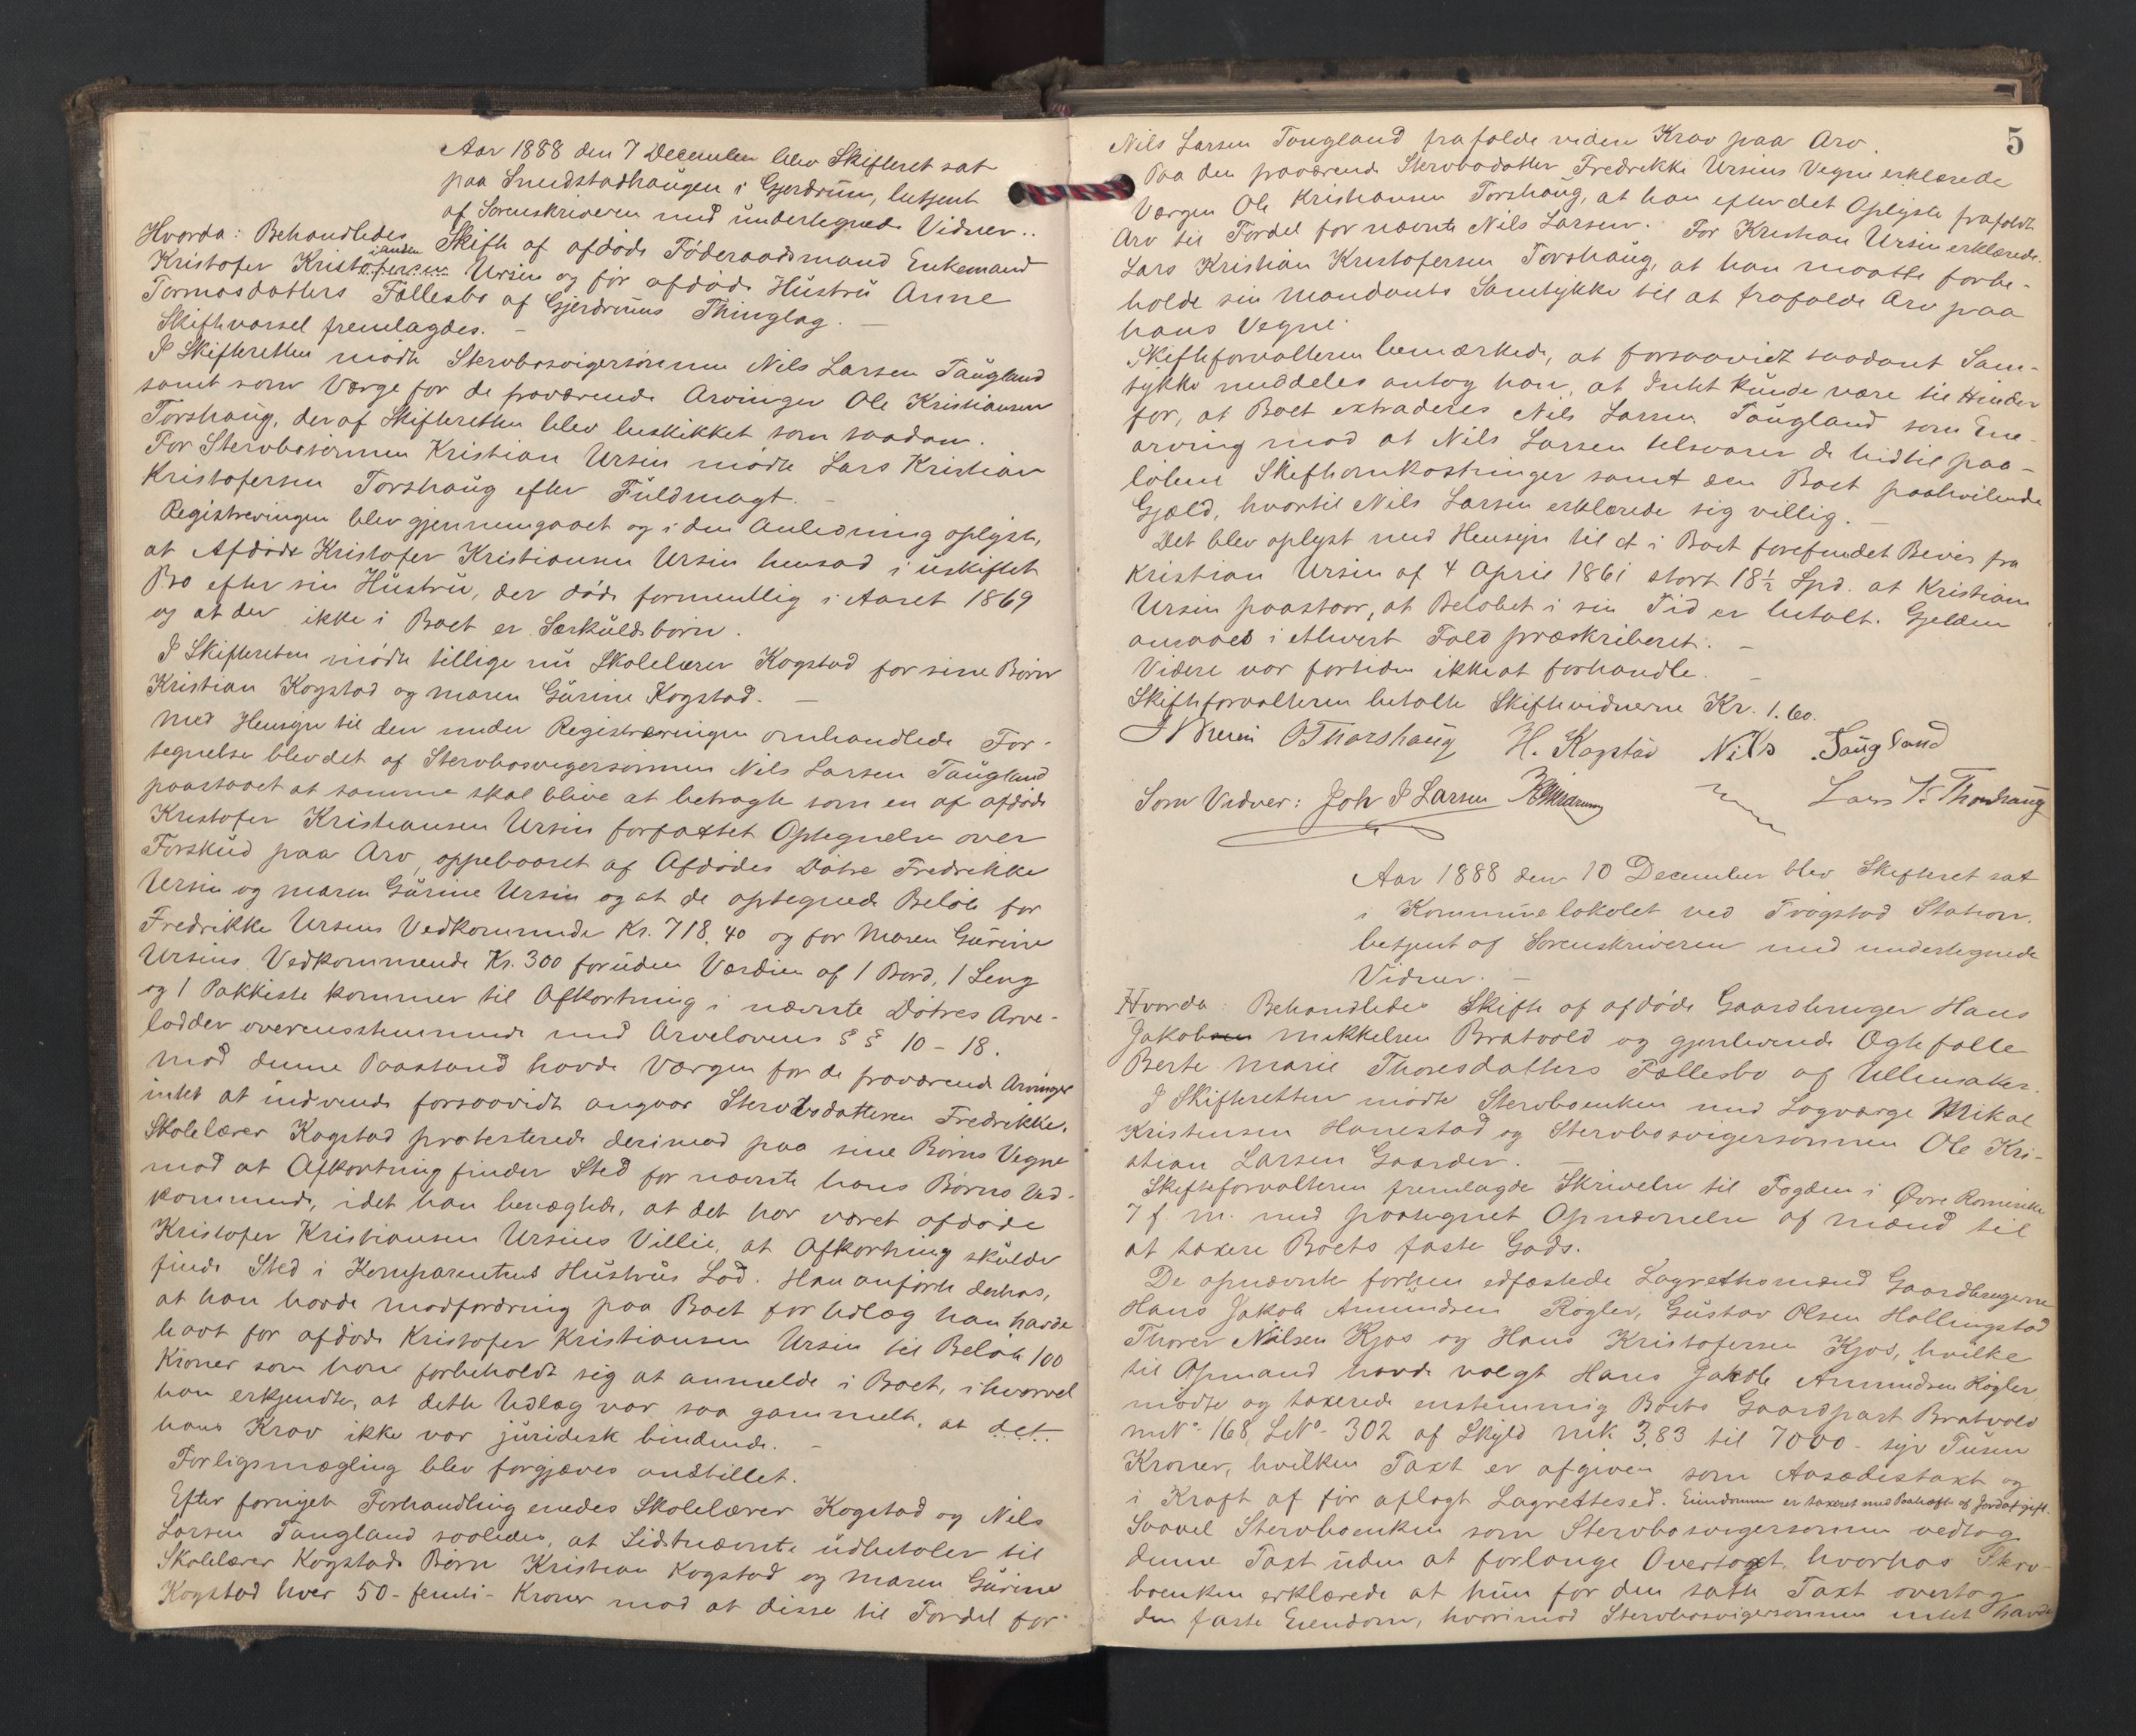 Aar 1888 den 7 December blev Skifteret sat
paa Smedstadhaugen i Gjerdrum, betjent
af Sorenskriveren med undertegnede Vidner..
Hvorda: Behandledes Skifte af afdøde Føderaadsmand Enkemand
Kristofer Kristofersen iansen Ursin og før afdøde Hustru Anne
Tormosdatters Fællesbo af Gjerdrums Thinglag. —
Skiftevarsel fremlagdes. —
I Skifteretten mødte Stervbosvigersønnen Nils Larsen Taugland
samt som Værge for de fraværende Arvinger Ole Kristiansen
Torshaug, der af Skifteretten blev beskikket som saadan.
For Stervbosønnen Kristian Ursin mødte Lars Kristian
Kristofersen Torshaug efter Fuldmagt. —
Registreringen blev gjennemgaaet og i den Anledning oplyst,
at Afdøde Kristofer Kristiansen Ursin hensad i uskiftet
Bo efter sin Hustru, der døde formentlig i Aaret 1869
og at der ikke i Boet er Særkuldsbørn.
I Skifteretten mødte tillige nu Skolelærer Kogstad for sine Børn
Kristian Kogstad og Maren Gurine Kogstad. —
Med Hensyn til den under Registreringen omhandlede For-
tegnelse blev det af Stervbosvigersønnen Nils Larsen Taugland
paastaaet at samme skal blive at betragte som en af afdøde
Kristofer Kristiansen Ursin forfattet Optegnelse over
Forskud paa Arv, oppebaaret af Afdødes Døtre Fredrikke
Ursin og Maren Gurine Ursin og at de optegnede Beløb for
Fredrikke Ursins Vedkommende Kr. 718.40 og for Maren Gurine
Ursins Vedkommende Kr. 300 foruden Værdien af 1 Bord, 1 Seng
og 1 Pakkiste kommer til Afkortning i nævnte Døtres Arve-
lodder overensstemmende med Arvelovens § § 10-18.
Mod denne Paastand havde Værgen for de fraværende Arvinger
intet at indvende forsaavidt angaar Stervbodatteren Fredrikke.
Skolelærer Kogstad protesterede derimod paa sine Børns Vegne
mod at Afkortning finder Sted for nævnte hans Børns Ved-
kommende, idet han benægtede, at det har været afdøde
Kristofer Kristiansen Ursins Villie, at Afkortning skulde
finde Sted i Komparentens Hustrus Lod. Han anførte derhos,
at han havde Modfordring paa Boet for Udlæg han havde
havt for afdøde Kristofer Kristiansen Ursin til Beløb 100
Kroner som han forbeholdt sig at anmelde i Boet, ihvorvel
han erkjendte, at dette Udlæg var saa gammelt, at det
hans Krav ikke var juridisk bindende. —
Forligsmægling blev forgjæves anstillet.
Efter fornyet Forhandling enedes Skolelærer Kogstad og Nils
Larsen Taugland saaledes, at Sidstnævnte udbetaler til
Skolelærer Kogstads Børn Kristian Kogstad og Maren Gurine
Kogstad hver 50 - femti - Kroner mod at disse til Fordel for
5
Nils Larsen Taugland frafalde videre Krav paa Arv.
Paa den fraværende Stervbodatter Fredrikke Ursins Vegne erklærede
Værgen Ole Kristiansen Torshaug, at han efter det Oplyste frafaldt
Arv til Fordel for nævnte Nils Larsen. For Kristian Ursin erklærede
Lars Kristian Kristofersen Torshaug, at han maatte forbe-
holde sin Mandants Samtykke til at frafalde Arv paa
hans Vegne.
Skifteforvalteren bemærkede, at forsaavidt saadant Sam-
tykke meddeles antog han, at Intet kunde være til Hinder
for, at Boet extraderes Nils Larsen Taugland som Ene-
arving mod at Nils Larsen tilsvarer de hidtil paa-
løbene Skifteomkostninger samt den Boet paahvilende
Gjæld, hvortil Nils Larsen erklærede sig villig. —
Det blev oplyst med Hensyn til et i Boet forefundet Bevis fra
Kristian Ursin af 4 April 1861 stort 18½ Spd. at Kristian
Ursin paastaar, at Beløbet i sin Tid er betalt. Gjelden
ansaaes i ethvert Fald præskriberet. —
Videre var fortiden ikke at forhandle. —
Skifteforvalteren betalte Skiftevidnerne Kr. 1.60.
O Thorshaug H. Kogstad Nils Taugland
Som Vidner: Joh P Larsen Lars K. Thorshaug
Aar 1888 den 10 December blev Skifteret sat
i Kommunelokalet ved Trøgstad Station,
betjent af Sorenskriveren med undertegnede
Vidner. —
Hvorda: Behandledes Skifte af afdøde Gaardbruger Hans
Jakobsen Mikkelsen Bratvold og gjenlevende Ægtefælle
Berte Marie Thoresdatters Fællesbo af Ullensaker.
I Skifteretten mødte Stervboenken med Lagværge Mikal
Kristensen Hanestad og Stervbosvigersønnen Ole Kri-
stian Larsen Gaarder. —
Skifteforvalteren fremlagde Skrivelse til Fogden i Øvre Romerike
7 f. M. med paategnet Opnævnelse af Mænd til
at taxere Boets faste Gods.
De opnævnte forhen edfæstede Lagrettesmænd Gaardbrugerne
Hans Jakob Amundsen Røgler, Gustav Olsen Hallingstad
Thorer Nilsen Kjos og Hans Kristofersen Kjos, hvilke
til Opmand havde valgt Hans Jakob Amundsen Røgler,
mødte og taxerede enstemmig Boets Gaardpart Bratvold
M.No 168, L.No 302 af Skyld Mk 3,83 til 7000 - syv Tusen
Kroner, hvilken Taxt er afgiven som Aasædestaxt og
i Kraft af før aflagt Lagrettesed. Eiendommen er taxeret med Paahæft af Jordafgift.
Saavel Stervboenken som Stervbosvigersønnen vedtog
denne Taxt uden at forlange Overtaxt, hvorhos Sterv-
boenken erklærede at hun for den satte Taxt overtog
den faste Eiendom, hvorimod Stervbosvigersønnen intet havde